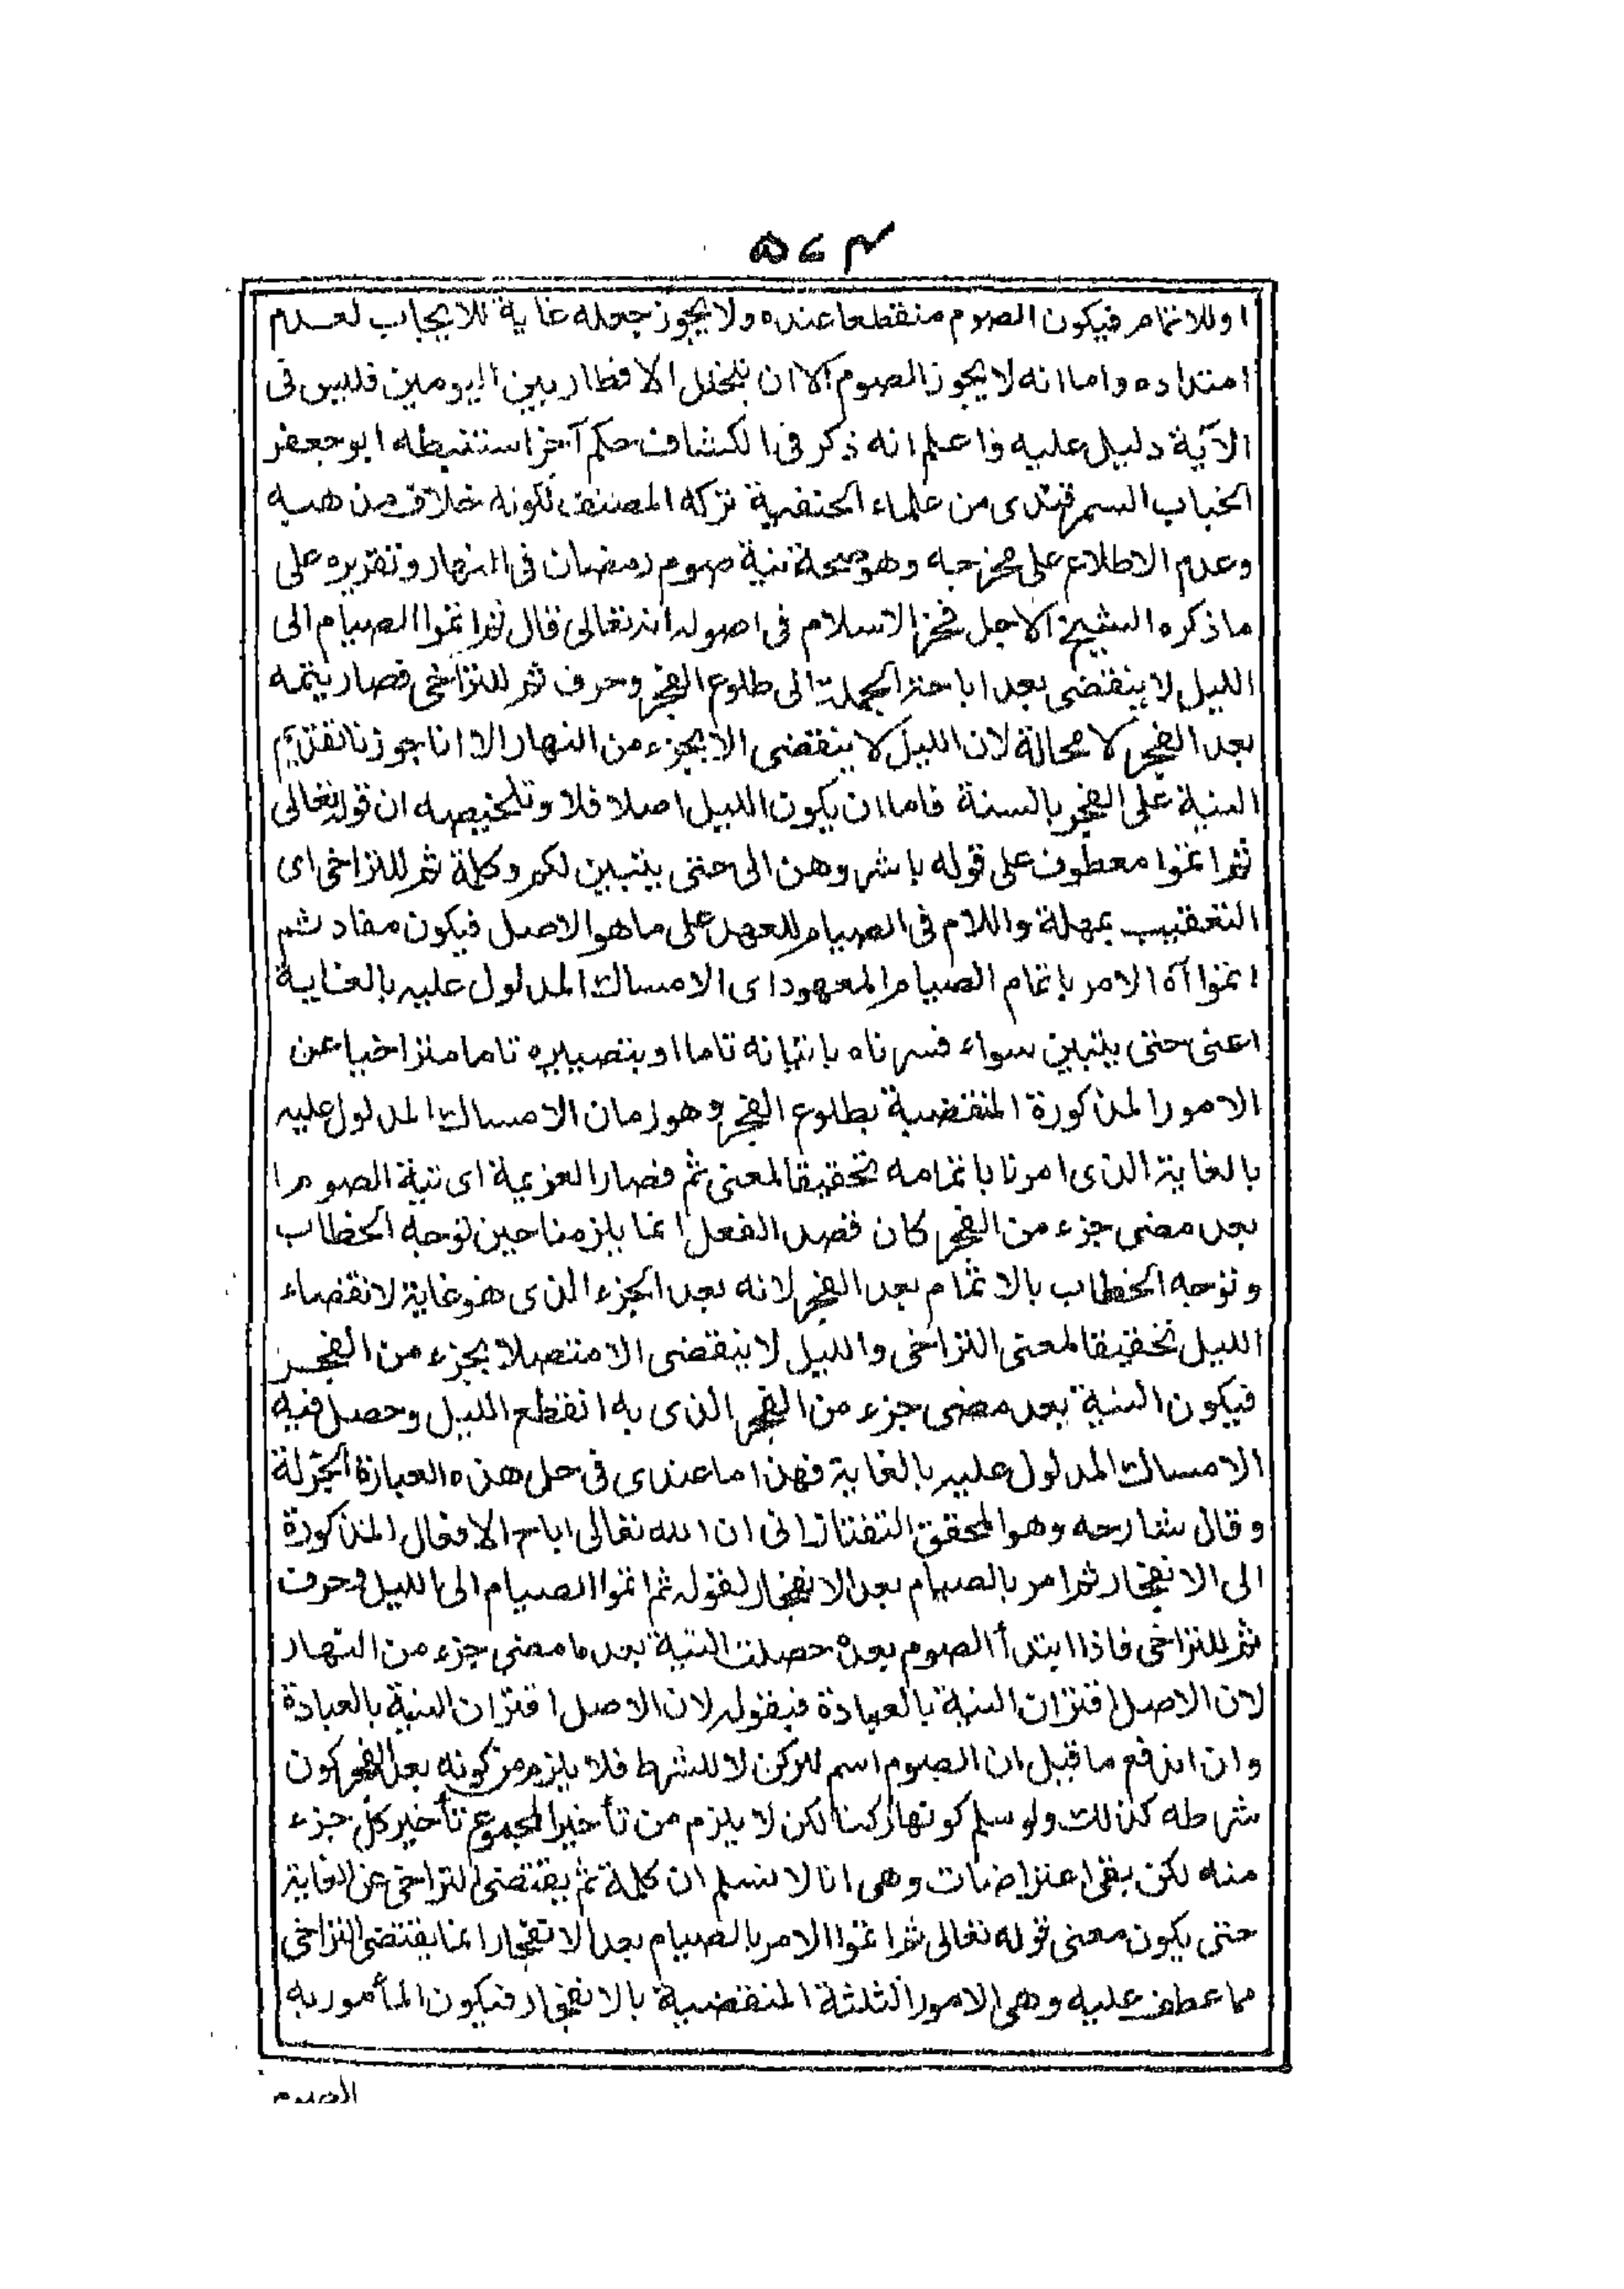 ۵۷۴
او للاتمام فيكون الصوم منقطعا عنده ولا يجوز جعله غاية للايجاب لعدم
امتداده واما انه لا يجوز الصوم الا ان يتخلل الافطار بين اليومين فليس فى
الآية دليل عليه واعلم انه ذكر فى الكشاف حكم آخر استنبطه ابو جعفر
الخباب السمرقندى من علماء الحنفية تركه المصنف لكونه خلاف مذهبه
وعدم الاطلاع على مخرجه وهو صحة نية صوم رمضان فى النهار وتقريره على
ما ذكره الشيخ الاجل فخر الاسلام فى اصوله انه تعالى قال ثم اتموا الصيام الى
الليل لا ينقضى بعد اباحة الجملة الى طلوع الفجر وحرف ثم للتراخى فصار يتمه
بعد الفجر لا محالة لان الليل لا ينقضى الا بجزء من النهار الا انا جوزنا تقديم
النية على الفجر بالسنة فاما ان يكون الليل اصلا فلا وتلخيصه ان قوله تعالى
ثم اتموا معطوف على قوله باشروهن الى حتى يتبين لكم وكلمة ثم للتراخى اى
التعقيب بمهلة واللام فى الصيام للعهد على ما هو الاصل فيكون مفاد ثم
اتموا آه الامر باتمام الصيام المعهود اى الامساك المدلول عليه بالغاية
اعنى حتى يتبين سواء فسرناه باتيانه تاما او بتصييره تاما متراخيا عن
الامور المذكورة المنقضية بطلوع الفجر وهو زمان الامساك المدلول عليه
بالغاية الذى امرنا باتمامه تحقيقا لمعنى ثم فصار العزيمة اى نية الصوم ا
بعد مضى جزء من الفجر كان قصد الفعل انما يلزمنا حين توجه الخطاب
وتوجه الخطاب بالاتمام بعد الفجر لانه بعد الجزء الذى هو غاية لانقضاء
الليل تحقيقا لمعنى التراخى والليل لا ينقضى الا متصلا بجزء من الفجر
فيكون النية بعد مضى جزء من الفجر الذى به انقطع الليل وحصل فيه
الامساك المدلول عليه بالغاية فهذا ما عندى فى حل هذه العبارة الجزلة
وقال شارحه وهو المحقق التفتازانى ان الله تعالى اباح الافعال المذكورة
الى الانفجار ثم امر بالصيام بعد الانفجار لقوله ثم اتموا الصيام الى الليل وحرف
ثم للتراخى فاذا ابتدأ الصوم بعده حصلت النية بعد ما مضى جزء من النهار
لان الاصل اقتران النية بالعبادة فبقوله لان الاصل اقتران النية بالعبادة
وان اندفع ما قيل ان الصوم اسم للركن لا للشرط فلا يلزم من كونه بعد الفجر كون
شرطه كذلك ولو سلم كونها ركنا لكن لا يلزم من تأخير المجموع تأخير كل جزء
منه لكن بقى اعتراضات وهى انا لا نسلم ان كلمة ثم يقتضى التراخى عن الغاية
حتى يكون معنى قوله تعالى ثم اتموا الامر بالصيام بعد الانفجار انما يقتضى التراخى
مما عطف عليه وهى الامور الثلثة المنقضية بالانفجار فيكون المأمور به
الصوم